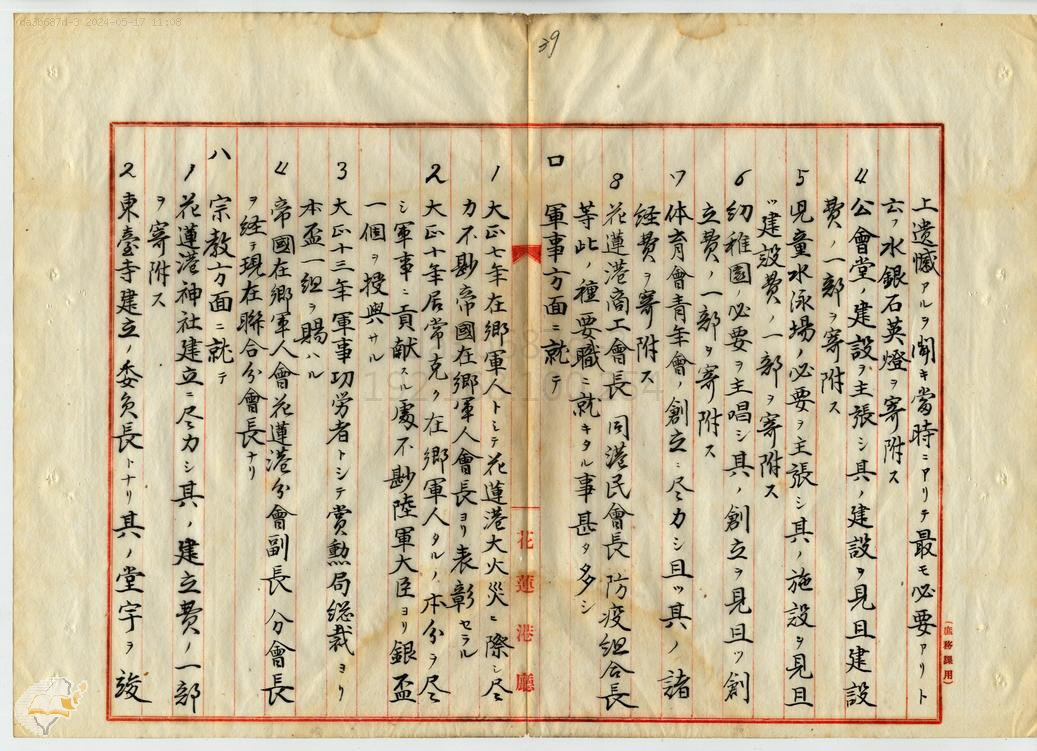 上遺憾アルヲ聞キ當時ニアリテ最モ必要アリト
云フ水銀石英燈ヲ寄附ス
4 公會堂ノ建設ヲ主張シ其ノ建設ヲ見且建設
費ノ一部ヲ寄附ス
5 児童水泳場ノ必要ヲ主張シ其ノ施設ヲ見且
ツ建設費ノ一部ヲ寄附ス
6 幼稚園ノ必要ヲ主唱シ其ノ創立ヲ見且ツ創
立費ノ一部ヲ寄附ス
7 体育會青年會ノ創立ニ尽力シ且ツ其ノ諸
経費ヲ寄附ス
8 花蓮港商工會長同港民會長防疫組合長
等此ノ種要職ニ就キタル事甚タ多シ
ロ 軍事方面ニ就テ
1 大正七年在郷軍人トシテ花蓮港大火災ニ際シ尽
力不尠帝國在郷軍人會長ヨリ表彰セラル
2 大正十年居常克ク在郷軍人タルノ本分ヲ尽
シ軍事ニ貢献スル處不尠陸軍大臣ヨリ銀盃
一個ヲ授與サル
3 大正十三年軍事功労者トシテ賞勲局総裁ヨリ
本盃一組ヲ賜ハル
4 帝國在郷軍人會花蓮港分會副長分會長
ヲ経テ現在聯合分會長ナリ
ハ 宗教方面ニ就テ
1 花蓮港神社建立ニ尽力シ其ノ建立費ノ一部
ヲ寄附ス
2 東臺寺建立ノ委員長トナリ其ノ堂宇ヲ竣
花蓮港廳
(庶務課用)
39
2024-05-17 11:08